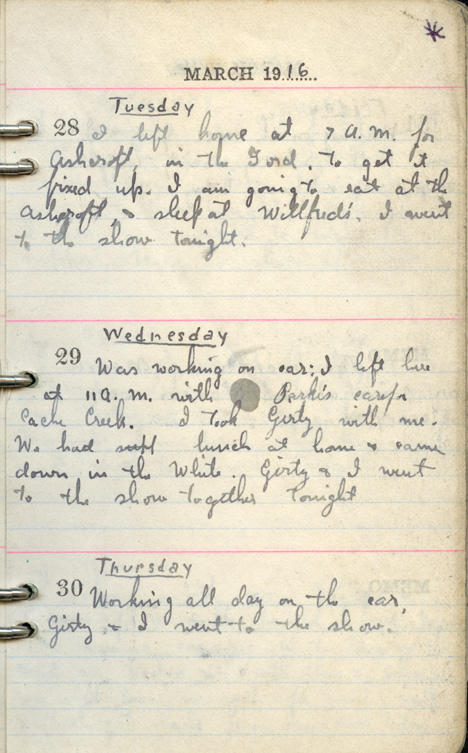 MARCH 1916
Tuesday
28 I left home at 7 A.M. for
Ashcroft, in the Ford, to get it
fixed up. I am going to eat at the
Ashcroft, & sleep at Willfred's. I went
to the show tonight.
Wednesday
29 Was working on car; I left here
at 11 A.M. with car for
Cache Creek. I took Girty with me.
We had lunch at home & came
down in the White. Girty & I went
to the show together tonight
Thursday
30 Working all day on the car,
Girty & I went to the show.